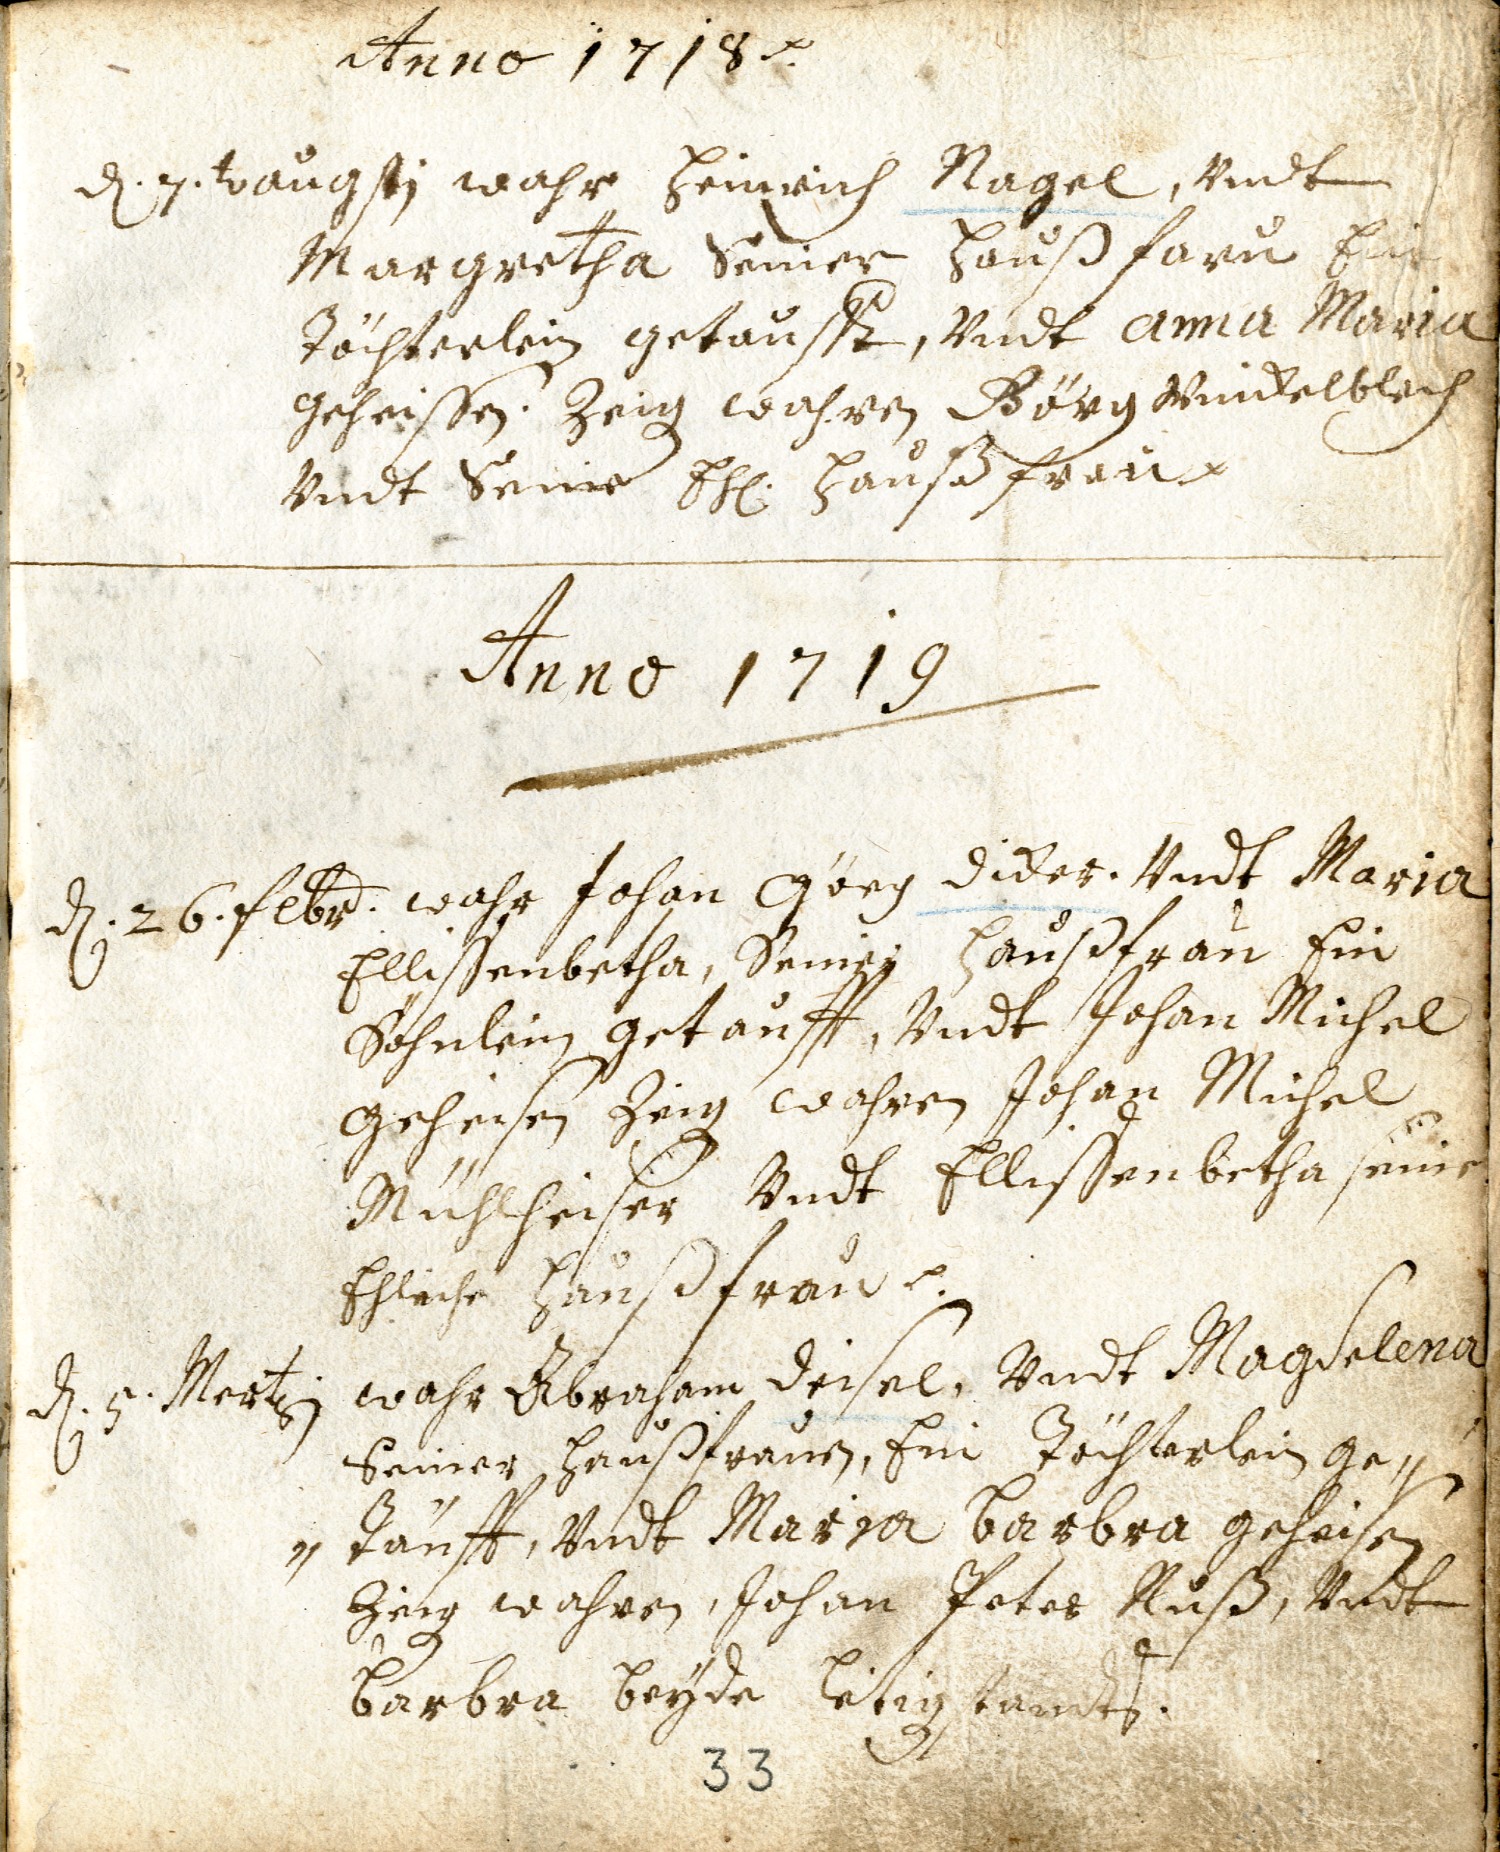 Anno 1718 ꝛ.
d. 7. t augstj wahr Heinrich Nagel, Vndt
Margretha Seiner Haußfaru Ein
Töchterlein getaufft, Vndt anna Maria
geheissen. Zeig wahren Görg Winckelblech
Vndt Seine Ehl. Haußfrau
Anno 1719
d. 26. febr. wahr Johan Görg dicker. Vndt Maria
Ellissenbetha, Seinej Haußfrau Ein
Söhnlein getaufft, Vndt Johan Michel
geheisen Zeig wahren Johan Michel
Mühlheiser Vndt Ellissenbetha seine
Ehliche Haußfrau ꝛ.
d. 5. Mertzj wahr Abraham deisel, Vndt Magdelena
Seiner Haußfrauen, Ein Töchterlein ge〃
〃 Täufft, Vndt Maria barbra geheisen
Zeig wahren, Johan Peter Nuß, Vndt
barbra beÿde letig standts.
33